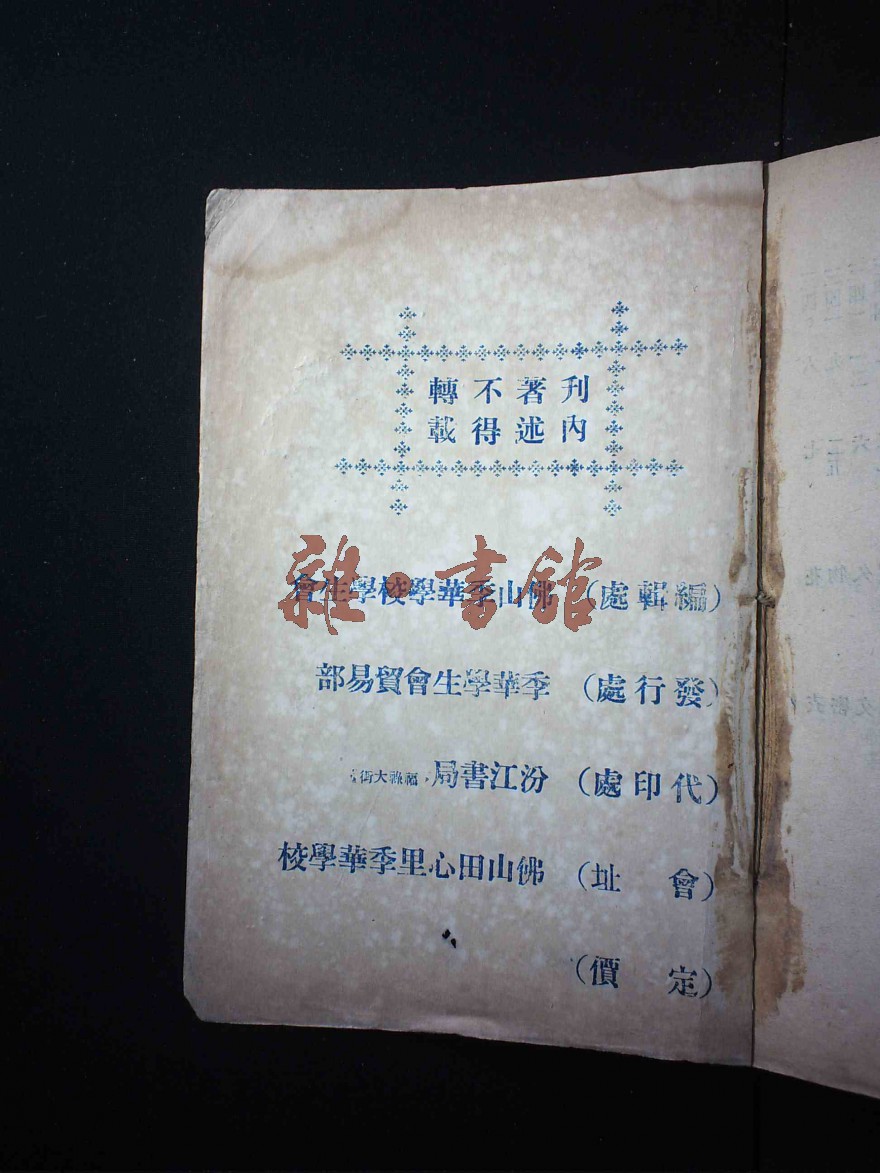 刊內著述不得轉載
(編輯處) 佛山季華學校學生會
(發行處) 季華學生會貿易部
(代印處) 汾江書局 福祿大街
(會址) 佛山田心里季華學校
(定價)
雜·書館